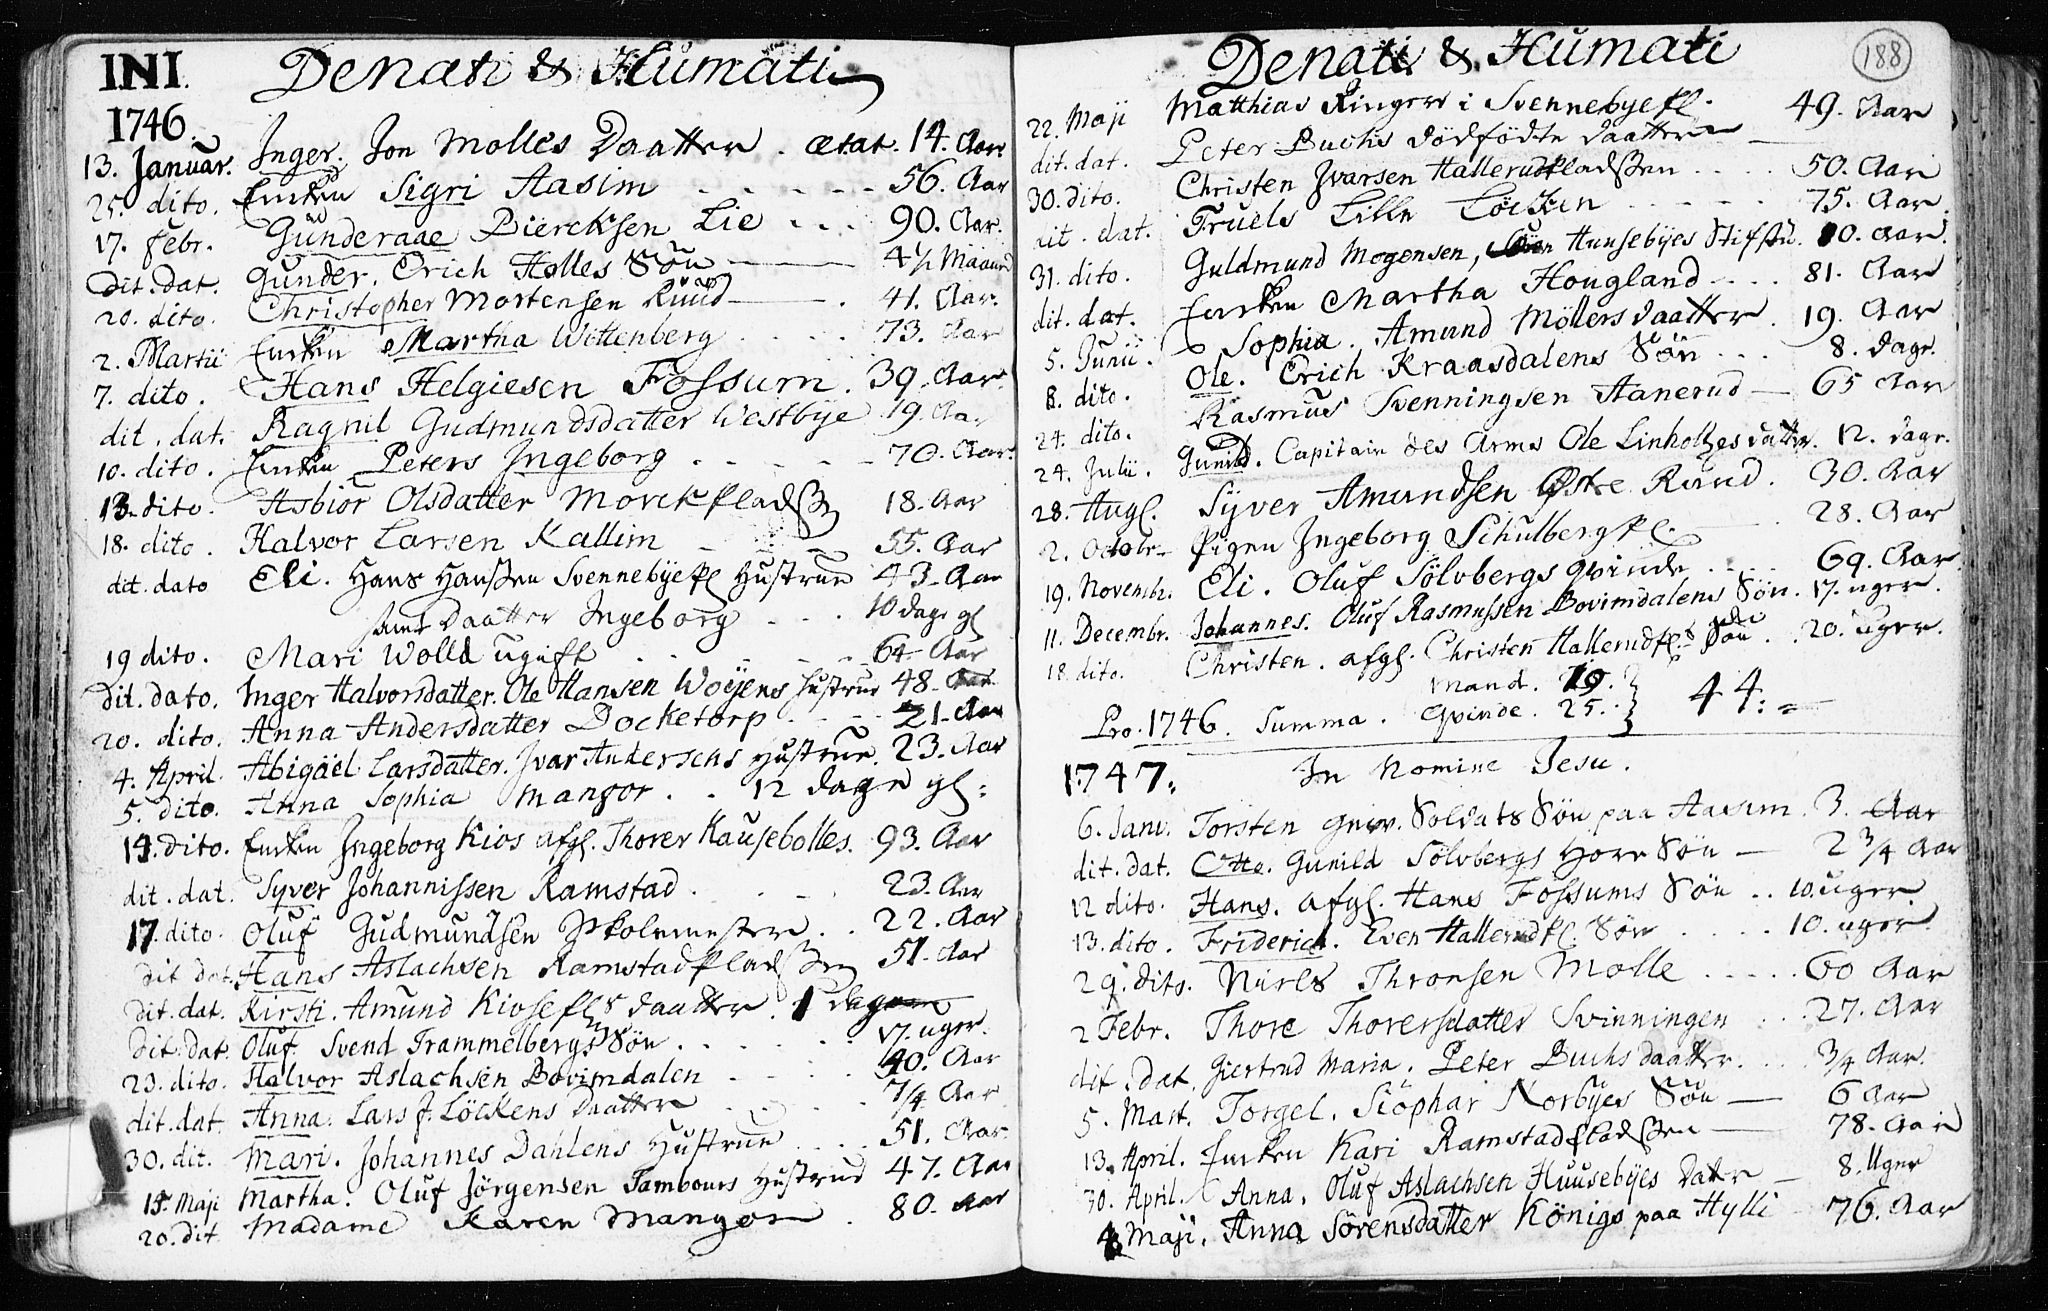 INI. Denati & Humati
1746.
13. Januar. Inger. Jon Molles Daatter. ætat. 14. Aar.
25. dito. Enken Sigri Aasim - - - - - 56. Aar
17. Febr. Gunderaae Biercksen Lie ... 90. Aar.
Dit. Dat. Gunder. Erich Holles Søn —— 4½ Maaned
20. dito. Christopher Mortensen Ruud ——. 41. Aar.
2. Martii Enken Martha Wittenberg . . . . 73. Aar
7. dito. Hans Helgiesen Fossum. 39. Aar.
dit. dat. Ragnil Gudmundsdatter Westbye 19. Aar
10. dito. Enken Peters Ingeborg - - - - - 70. Aar.
13. dito. Asbior Olsdatter Morckpladsen 18. Aar
18. dito. Halvor Larsen Kallim - - - 55. Aar
dit. dato Eli. Hans Hansen Svennebyepl Hustrue 43. Aar
samt Daatter Ingeborg - - - 10 dage gl
19 dito. Mari Wolld ugift . . . . 64 Aar
Dit. dato. Inger Halvorsdatter. Ole Hansen Woyens Hustrue 48. Aar
20. dito. Anna Andersdatter Docketorp . - - - 21. Aar
4. April Abigael Larsdatter. Ivar Andersens Hustrue. 23. Aar
5. dito. Anna Sophia Mangor . . 12 dage gl:
14. dito. Enken Ingeborg Kios afgl. Thorer Hausebolles. 93. Aar
dit. dat. Syver Johannissen Ramstad . - - 23. Aar
17. dito. Oluf Gudmundsen Skolemester . . 22. Aar
dit dat. Hans Aslachsen Ramstadpladsen 51. Aar
dit. dat. Kirsti. Amund Kiosepls daatter. 1 dag
Dit. dat. Oluf. Svend Trammelbergs Søn . . . . . 17. uger.
23. dito. Halvor Aslachsen Bovimdalen - - - - 40. Aar
dit. dat. Anna. Lars J. Løckens Daatter - - - - 7/4 Aar
30. dit. Mari. Johannes Dahlens Hustrue . . . . 51. Aar
15. Maji Martha. Oluf Jørgensen Tambours Hustrue 47. Aar
20. dit Madame Karen Mangor . 80. Aar
Denati & Humati 188
22. Maji Matthias Ringer i Svennebyepl. 49. Aar
dit. dat. Peter Buchs dødfødte daatter —
30. dito. Christen Ivarsen Hallerudpladsen . . . . 50. Aar
dit. dat. Truels Lille Løcken - - - - - 75. Aar.
31. dito. Guldmund Mogensen, Huusebyes Stifsøn. 10. Aar.
dit. dat. Enken Martha Hougland - - - . 81. Aar
5. Junii. Sophia. Amund Møllers daatter. 19. Aar
8. dito. Ole. Erich Kraasdalens Søn . . . 8. dage.
24. dito. Rasmus Svenningsen Aanerud — 65 Aar
24. Julii. Gunild. Capitain des Arms Ole Linholtzes datter. 12. dage.
28. Aug. Syver Amundsen Østre Ruud. 30. Aar
2. Octobr. Pigen Ingeborg Schulbergpl. —— 28. Aar
19. Novembr. Eli. Oluf Sølvbergs qvinde . . . . 69. Aar
11. Decembr. Johannes. Oluf Rasmussen Bovimdalens Søn. 17. uger.
18. dito. Christen. afgl. Christen Hallerudpls Søn . . 20. uger.
Mand. 19. }
Pro. 1746. Summa. Qvinde. 25. } 44.
1747. In Nomine Jesu.
6. Janv. Torsten Soldats Søn paa Aasim. 3. Aar
dit. dat. Otto. Gunild Sølvbergs Hore Søn — 2 3/4 Aar
12 dito. Hans. afgl. Hans Fossums Søn . . 10. uger
13. dito. Friderich. Even Hallerudpl. Søn . . . . 10. uger.
29. dito. Niels Thronsen Molle . . . . . 60 Aar
2 Febr. Thore Thorersdatter Svinningen . . . 27. Aar
dit. dat. Giertrud Maria. Peter Buchs daatter. . . . 3/4 Aar.
5. Mart. Torgel. Siophar Norbyes Søn —— 6 Aar
13. April. Enken Kari Ramstadpladsen —— 78. Aar
30. April. Anna. Oluf Aslachsen Huusebyes Datter — 8. Uger
4. Maji. Anna Sørensdatter Königs paa Hylli - 76. Aar